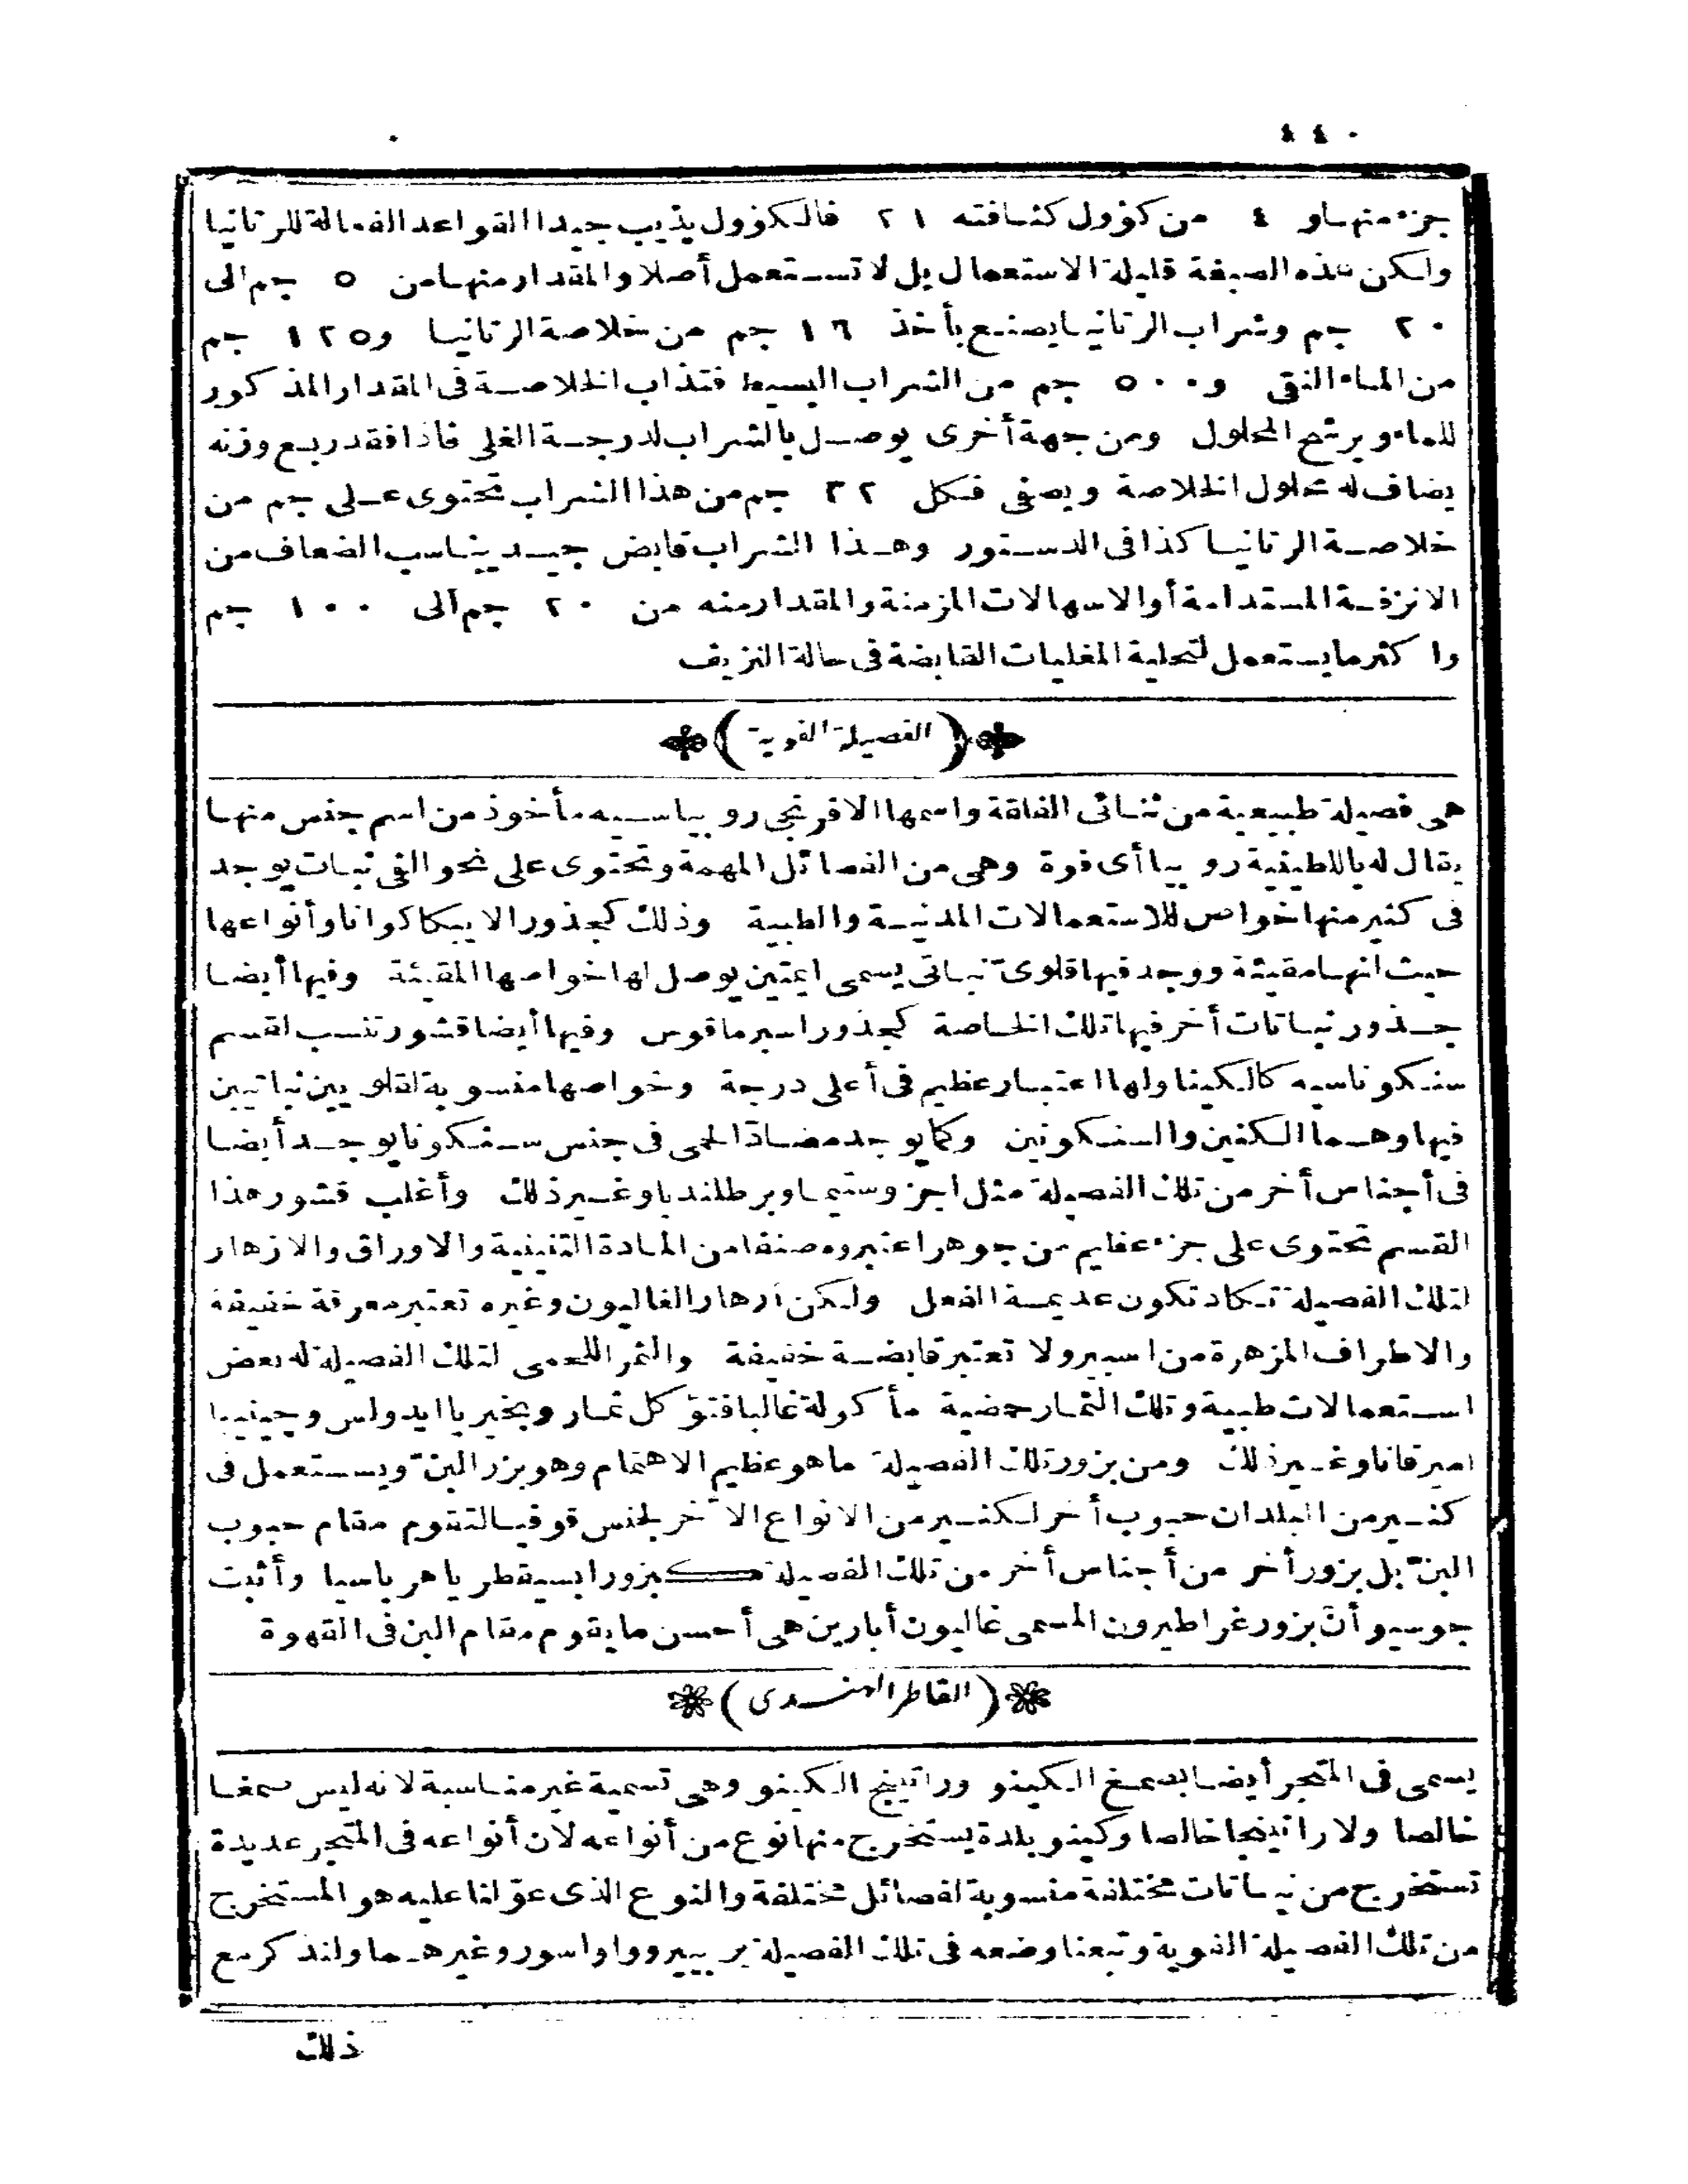 ٤٤٠
جزء منها و ٤ من كؤول كثافته ٢١ فالكؤول يذيب جيدا القواعد الفعالة للرتانيا
ولكن هذه الصبغة قليلة الاستعمال بل لا تستعمل أصلا والمقدار منها من ٥ جم الى
٢٠ جم وشراب الرتانيا يصنع بأخذ ١٦ جم من خلاصة الرتانيا و١٢٥ جم
من الماء النقى و٥٠٠ جم من الشراب البسيط فتذاب الخلاصة فى المقدار المذكور
للماء ويرشح المحلول ومن جهة أخرى يوصل بالشراب لدرجة الغلى فاذا فقد ربع وزنه
يضاف له محلول الخلاصة ويصفى فكل ٣٢ جم من هذا الشراب تحتوى على جم من
خلاصة الرتانيا كذا فى الدستور وهذا الشراب قابض جيد يناسب الضعاف من
الانزفة المستدامة أو الاسهالات المزمنة والمقدار منه من ٢٠ جم الى ١٠٠ جم
واكثر ما يستعمل لتحلية المغليات القابضة فى حالة النزيف
(الفصيلة الفوية)
هى فصيلة طبيعية من ثنائى الفلقة واسمها الافرنجى روبياسيه مأخوذ من اسم جنس منها
يقال له باللطينية روبيا أى فوة وهى من الفصائل المهمة وتحتوى على نحو الفى نبات يوجد
فى كثير منها خواص للاستعمالات المدنية والطبية وذلك كجذور الايبكاكوانا وأنواعها
حيث انها مقيئة ووجد فيها قلوىّ نباتى يسمى ايمتين يوصل لها خواصها المقيئة وفيها أيضا
جذور نباتات أخر فيها تلك الخاصة كجذور اسبرماقوس وفيها أيضا قشور تنسب لقسم
سنكوناسيه كالكينا ولها اعتبار عظيم فى أعلى درجة وخواصها منسوبة لقلويين نباتيين
فيها وهما الكنين والسنكونين وكما يوجد مضادّ الحمى فى جنس سنكونا يوجد أيضا
فى أجناس أخر من تلك الفصيلة مثل اجزوستيما وبرطلنديا وغير ذلك وأغلب قشور هذا
القسم تحتوى على جزء عظيم من جوهر اعتبروه صنفا من المادة التنينية والاوراق والازهار
لتلك الفصيلة تكاد تكون عديمة الفعل ولكن أزهار الغاليون وغيره تعتبر معرقة خفيفة
والاطراف المزهرة من اسبيرولا تعتبر قابضة خفيفة والثمر اللحمى لتلك الفصيلة له بعض
استعمالات طبية وتلك الثمار حمضية مأكولة غالبا فتؤكل ثمار ونجيريا ايدولس وجينيبا
اميرقانا وغير ذلك ومن بزور تلك الفصيلة ما هو عظيم الاهتمام وهو بزر البنّ ويستعمل فى
كثير من البلدان حبوب أخر لكثير من الانواع الاٌخر لجنس قوفيا لتقوم مقام حبوب
البنّ بل بزور أخر من أجناس أخر من تلك الفصيلة كبزور ابسيقطريا هرباسيا وأثبت
جوسيو أنّ بزور غراطيرون المسمى غاليون أبارين هى أحسن ما يقوم مقام البن فى القهوة
(القاطر الهندى)
يسمى فى المتجر أيضا بصمغ الكينو وراتينج الكينو وهى تسمية غير مناسبة لانه ليس صمغا
خالصا ولا راتينجا خالصا وكينو بلدة يستخرج منها نوع من أنواعه لان أنواعه فى المتجر عديدة
تستخرج من نباتات مختلفة منسوبة لفصائل مختلفة والنوع الذى عوّلنا عليه هو المستخرج
من تلك الفصيلة الفوية وتبعنا وضعه فى تلك الفصيلة بربيير وواواسور وغيرهما ولنذكر مع
ذلك